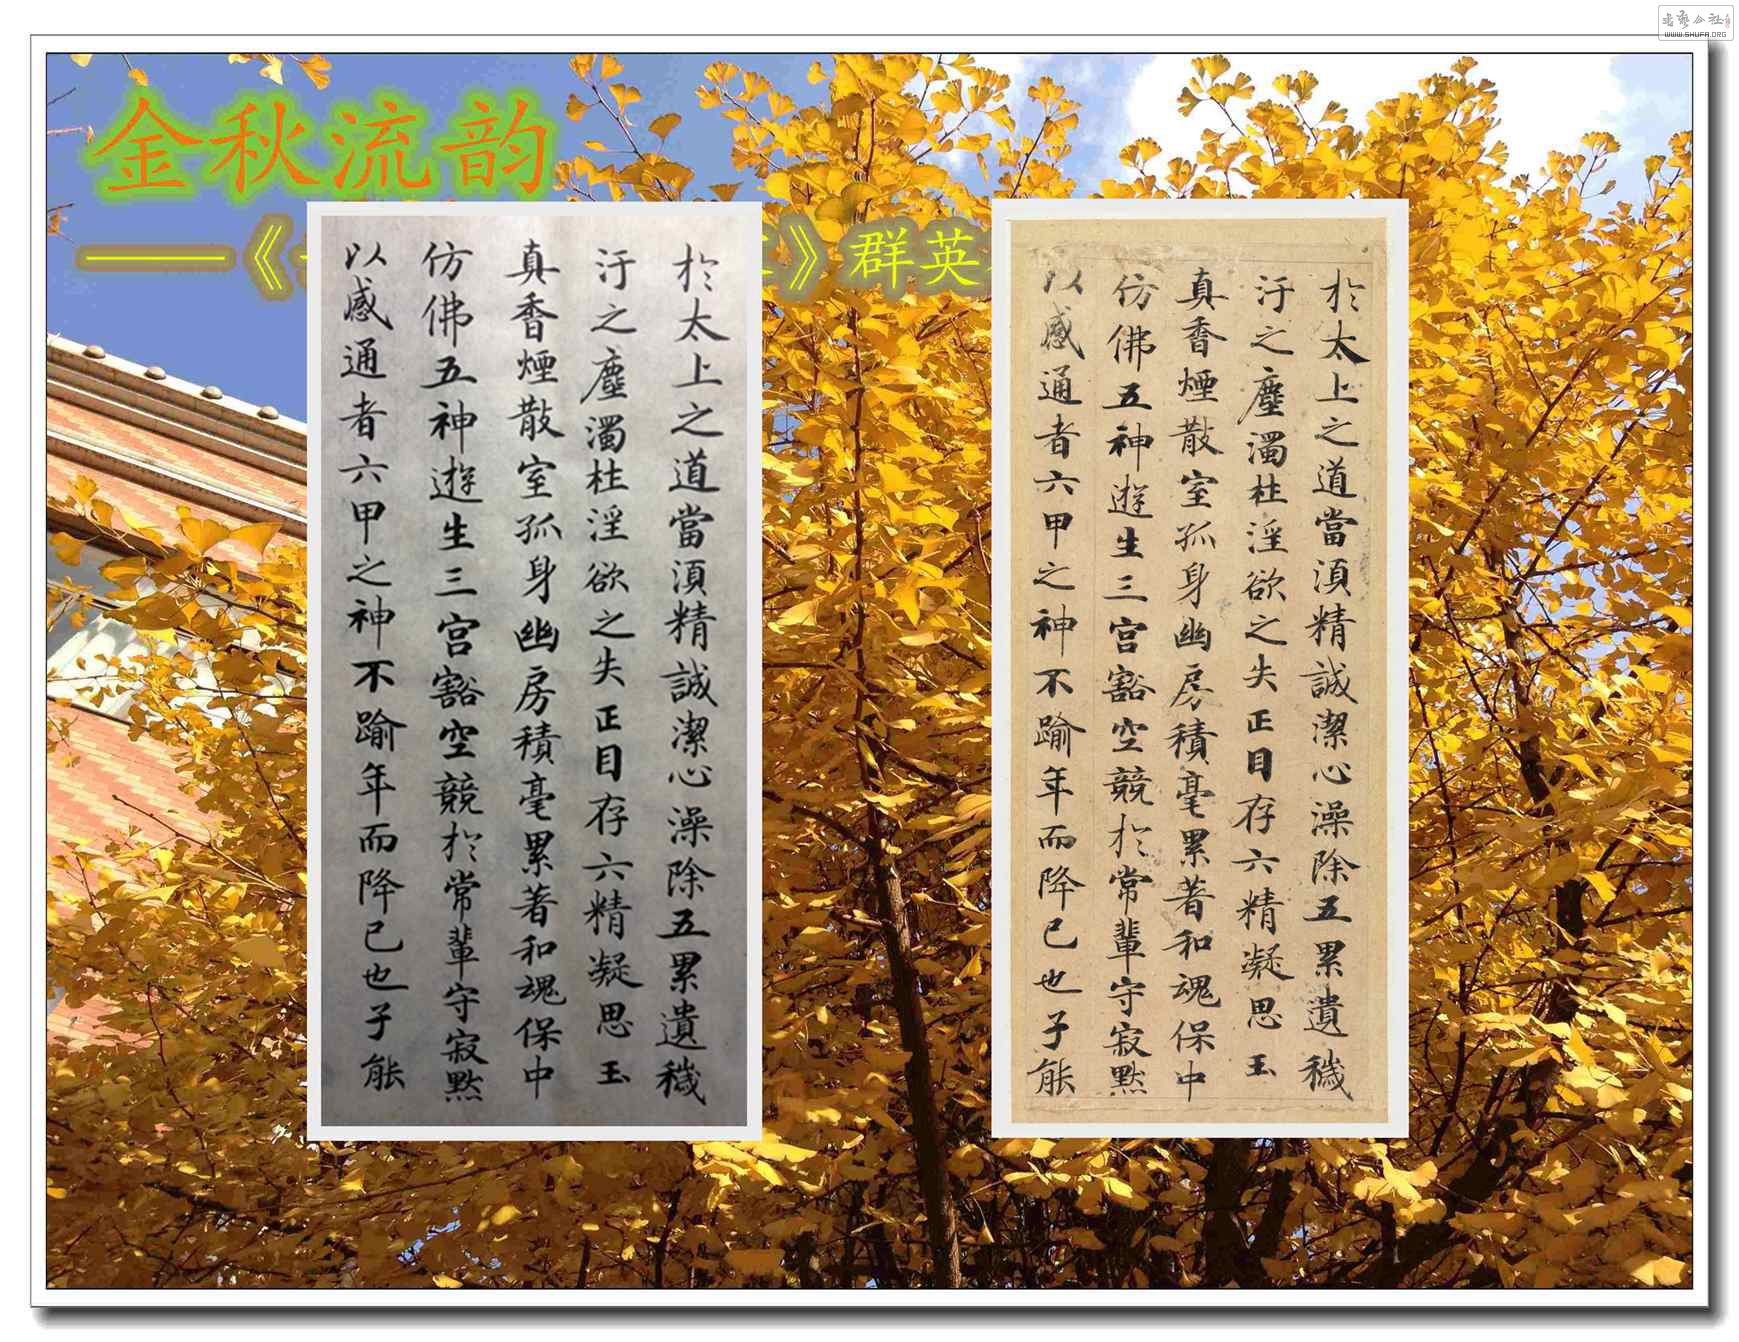 金秋流韵
——《
》群英
於太上之道當湏精誠潔心澡除五累遺穢
汙之塵濁杜淫欲之失正目存六精凝思玉
真香煙散室孤身幽房積毫累著和魂保中
仿佛五神遊生三宮豁空競於常輩守寂默
以感通者六甲之神不踰年而降已也子能
於太上之道當湏精誠潔心澡除五累遺穢
汙之塵濁杜淫欲之失正目存六精凝思玉
真香煙散室孤身幽房積毫累著和魂保中
仿佛五神遊生三宮豁空競於常輩守寂默
以感通者六甲之神不踰年而降已也子能
書藝公社
WWW.SHUFA.ORG